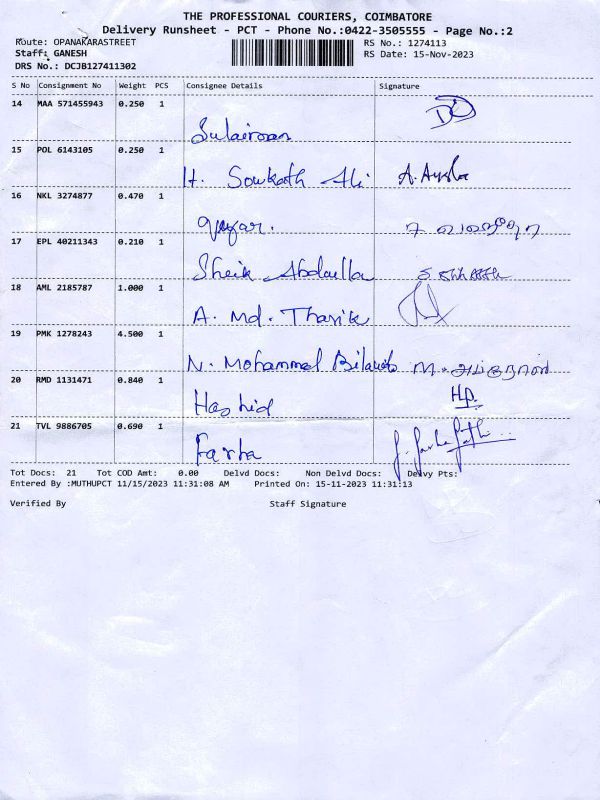 THE PROFESSIONAL COURIERS, COIMBATORE
Delivery Runsheet - PCT - Phone No.:0422-3505555 - Page No.:2
Route: OPANAKARASTREET RS No.: 1274113
Staff: GANESH RS Date: 15-Nov-2023
DRS No.: DCJB127411302
S No Consignment No Weight PCS Consignee Details Signature
14 MAA 571455943 0.250 1
Sulaiman
15 POL 6143105 0.250 1
H. Sowkath Ali A. Aysha
16 NKL 3274877 0.470 1
17 EPL 40211343 0.210 1
Sheik Abdulla
18 AML 2185787 1.000 1
A. Md. Tharik
19 PMK 1278243 4.500 1
N. Mohammed
20 RMD 1131471 0.840 1
Hashid
21 TVL 9886705 0.690 1
Farha
Tot Docs: 21 Tot COD Amt: 0.00 Delvd Docs: Non Delvd Docs: Delvy Pts:
Entered By :MUTHUPCT 11/15/2023 11:31:08 AM Printed On: 15-11-2023 11:31:13
Verified By Staff Signature